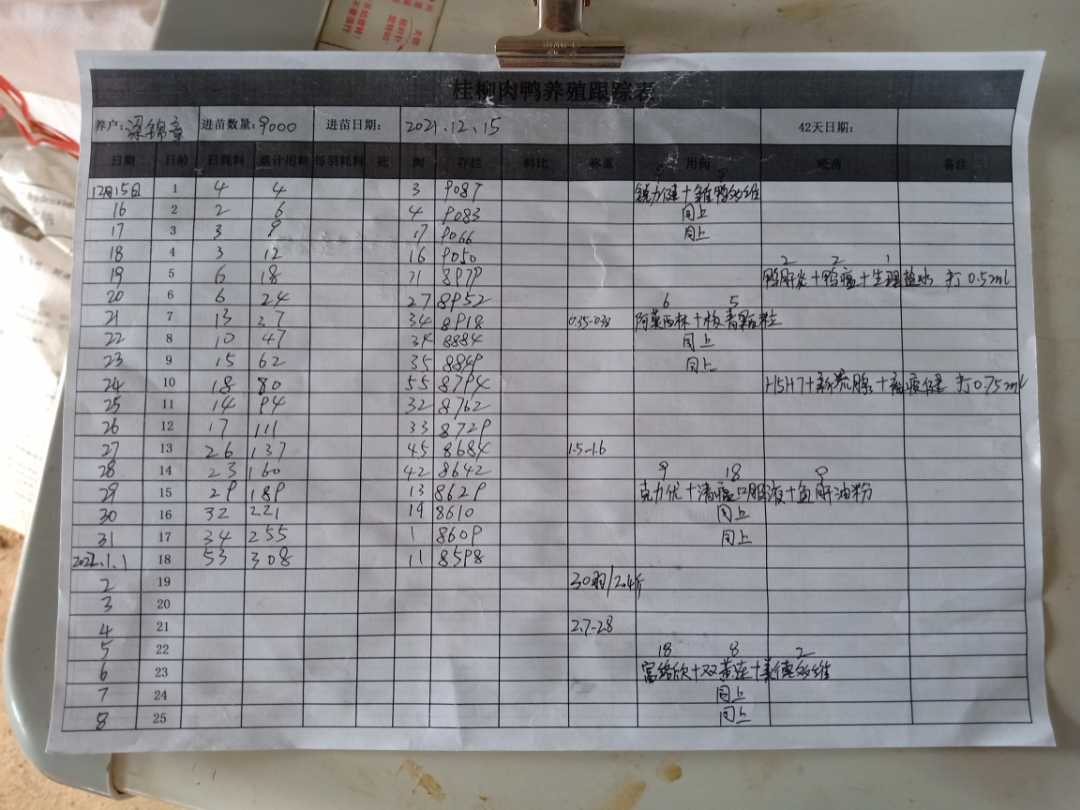 桂柳肉鸭养殖跟踪表
养户:梁锦章 进苗数量:9000 进苗日期: 2021.12.15 42天日期:
日期 日龄 日耗料 累计用料 每羽耗料 死 淘 存栏 料比 称重 用药 疫苗 备注
12月15日 1 4 4 3 9087
16 2 2 6 4 9083 同上
17 3 3 9 17 9066 同上
18 4 3 12 16 9050
2 2 1
19 5 6 18 71 8979 鸭肝炎+鸭瘟+生理盐水 打0.5ml
20 6 6 24 27 8952
6 5
21 7 13 37 34 8918 阿莫西林+板青颗粒
22 8 10 47 34 8884 同上
23 9 15 62 35 8849 同上
24 10 18 80 55 8794 H5H7+新流腺+ 打0.75ml
25 11 14 94 32 8762
26 12 17 111 33 8729
27 13 26 137 45 8684 1.5-1.6
28 14 23 160 42 8642
9 18 9
29 15 29 189 13 8629 克力优+清瘟口服液+鱼肝油粉
30 16 32 221 19 8610 同上
31 17 34 255 1 8609 同上
2022.1.1 18 53 308 11 8598
2 19 30羽/2.4斤
3 20
4 21 2.7-2.8
5 22
18 8 2
6 23 +双黄连+
7 24 同上
8 25 同上